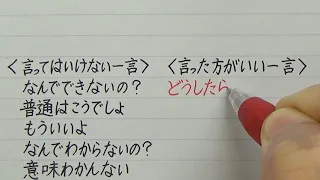 ＜言ってはいけない一言＞　＜言った方がいい一言＞
なんでできないの？　どうしたら
普通はこうでしょ
もういいよ
なんでわからないの？
意味わかんない